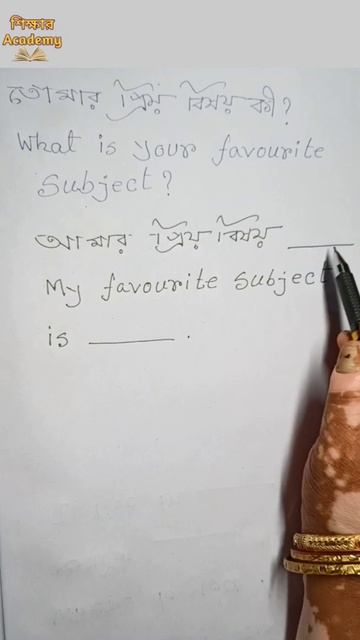 শিক্ষার
Academy
তোমার প্রিয় বিষয় কী?
What is your favourite
Subject?
আমার প্রিয় বিষয় ______
My favourite Subject
is ______ .